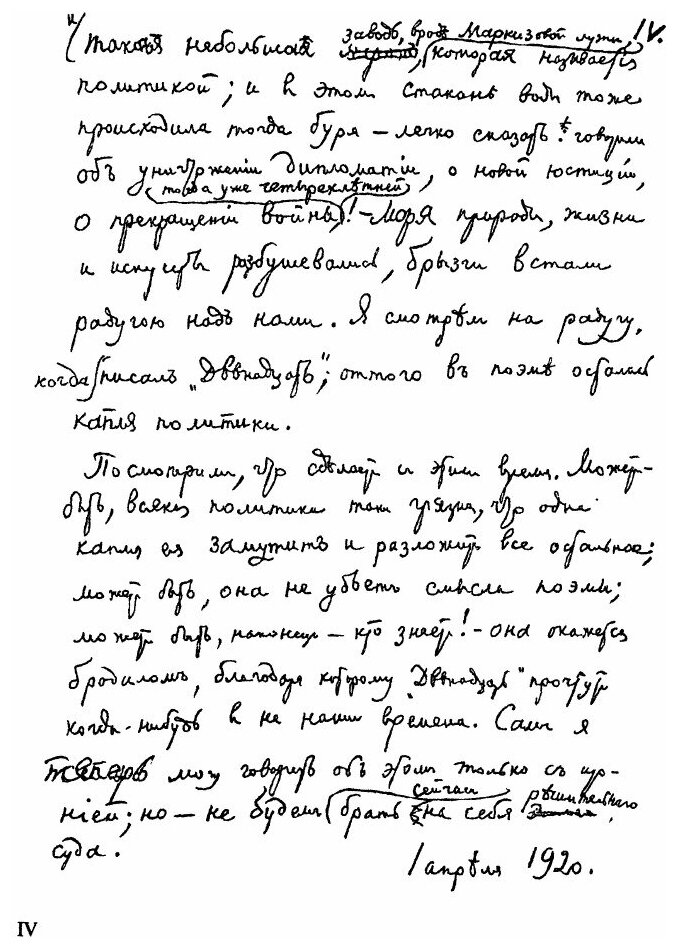 заводь, вродѣ Маркизовой лужи, IV.
такая небольшая которая называется
политикой; и в этом стаканѣ воды тоже
происходила тогда буря — легко сказать: говорили
объ уничтоженiи дипломатiи, о новой юстицiи,
тогда уже четырехлѣтней
о прекращенiи войны, ! — Моря природы, жизни
и искусства разбушевались, брызги встали
радугою надъ нами. Я смотрѣл на радугу,
когда писалъ „Двѣнадцать“; оттого въ поэмѣ осталась
капля политики.
Посмотрим, что сдѣлает с этим время. Может-
быть, всякая политика так грязна, что одна
капля ея замутитъ и разложит все остальное;
может быть, она не убьетъ смысла поэмы;
может быть, наконец — кто знает! — она окажется
бродиломъ, благодаря которому „Двѣнадцать“ прочтут
когда-нибудь в не наши времена. Самъ я
теперь могу говорить объ этом только съ иро-
нiей; но — не будем сейчас брать на себя рѣшительнаго
суда.
1 апрѣля 1920.
IV